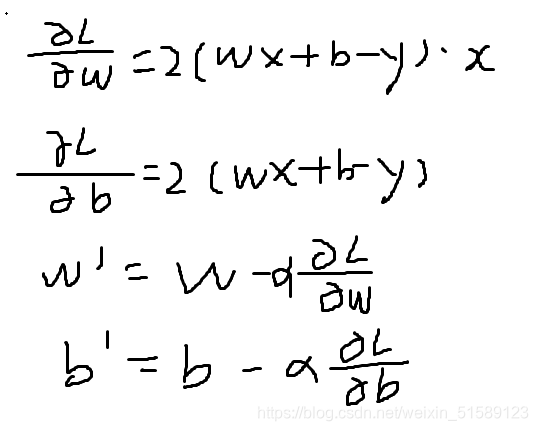 ∂L/∂w = 2(wx+b-y)·x
∂L/∂b = 2(wx+b-y)
w' = w - α ∂L/∂w
b' = b - α ∂L/∂b
https://blog.csdn.net/weixin_51589123